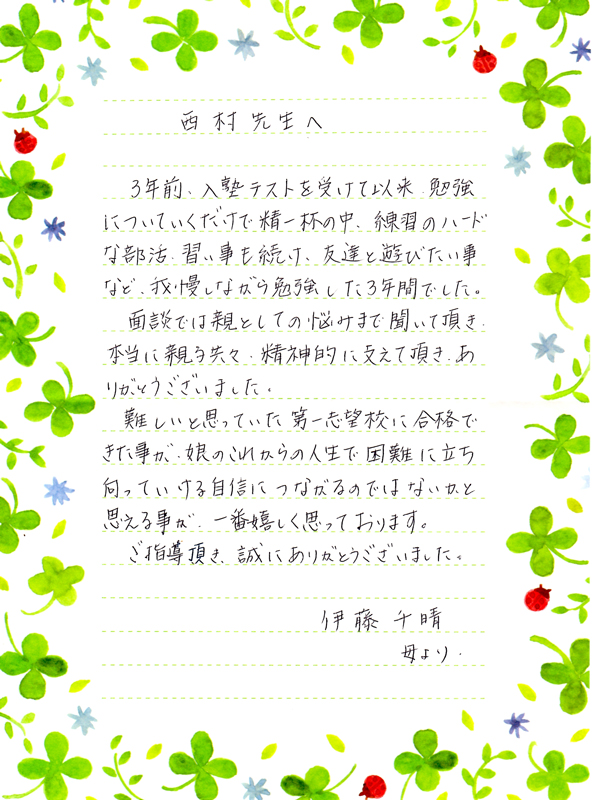 西村先生へ
3年前、入塾テストを受けて以来、勉強
についていくだけで精一杯の中、練習のハード
な部活、習い事も続け、友達と遊びたい事
など、我慢しながら勉強した3年間でした。
面談では親としての悩みまで聞いて頂き、
本当に親子共々、精神的に支えて頂き、あ
りがとうございました。
難しいと思っていた第一志望校に合格で
きた事が、娘のこれからの人生で困難に立ち
向っていける自信につながるのではないかと
思える事が、一番嬉しく思っております。
ご指導頂き、誠にありがとうございました。
伊藤千晴
母より.